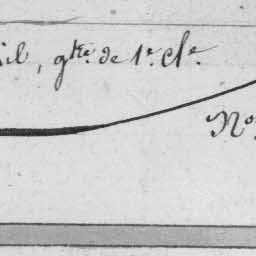 il, gtte. de 1e. Cle.
No